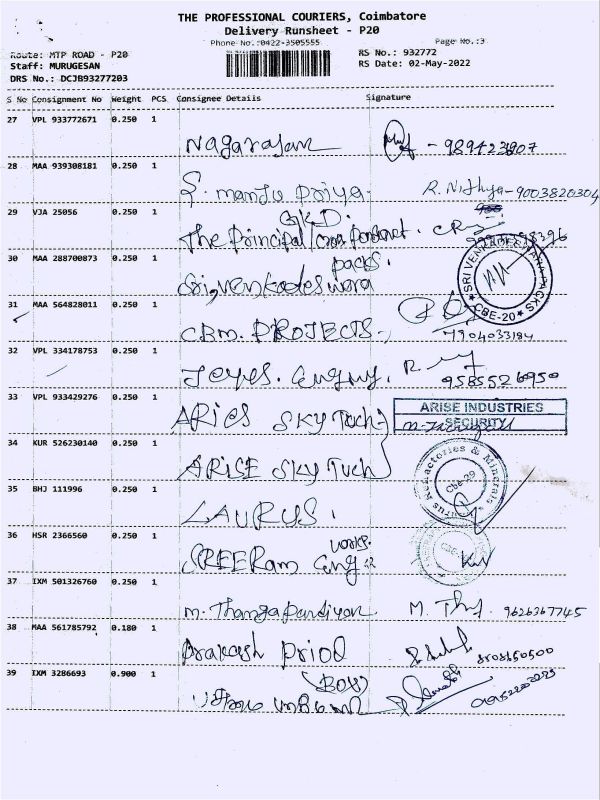 THE PROFESSIONAL COURIERS, Coimbatore
Delivery Runsheet - P20
Phone No.:0422-3505555
Page No.:3
Route: MTP ROAD - P20
RS No.: 932772
Staff: MURUGESAN
RS Date: 02-May-2022
DRS No.: DCJB93277203
S No Consignment No Weight PCS Consignee Details Signature
27 VPL 933772671 0.250 1
Nagarajan - 989423907
28 MAA 939308181 0.250 1
S. manju priya. R. Nithya - 9003820304
29 VJA 25056 0.250 1
G.K.D.
The principal
30 MAA 288700873 0.250 1
packs.
Sri venkadeswara
SRI VENKADESWARA PACKS
CBE-20
31 MAA 564828011 0.250 1
CBM. PROJECTS
7904033184
32 VPL 334178753 0.250 1
Jeyes. Engg.
9585526950
33 VPL 933429276 0.250 1
ARIES SKY Tech
ARISE INDUSTRIES
SECURITY
34 KUR 526230140 0.250 1
ARISE SKY Tech
35 BHJ 111996 0.250 1
LAURUS.
Laurus Refractories & Minerals
Cbe-29
36 HSR 2366560 0.250 1
works.
SREERam Eng
CBE-
37 IXM 501326760 0.250 1
m. Thangapandiyan. M. Th 9626367745
38 MAA 561785792 0.180 1
prakash priol
39 IXM 3286693 0.900 1
(BOX)